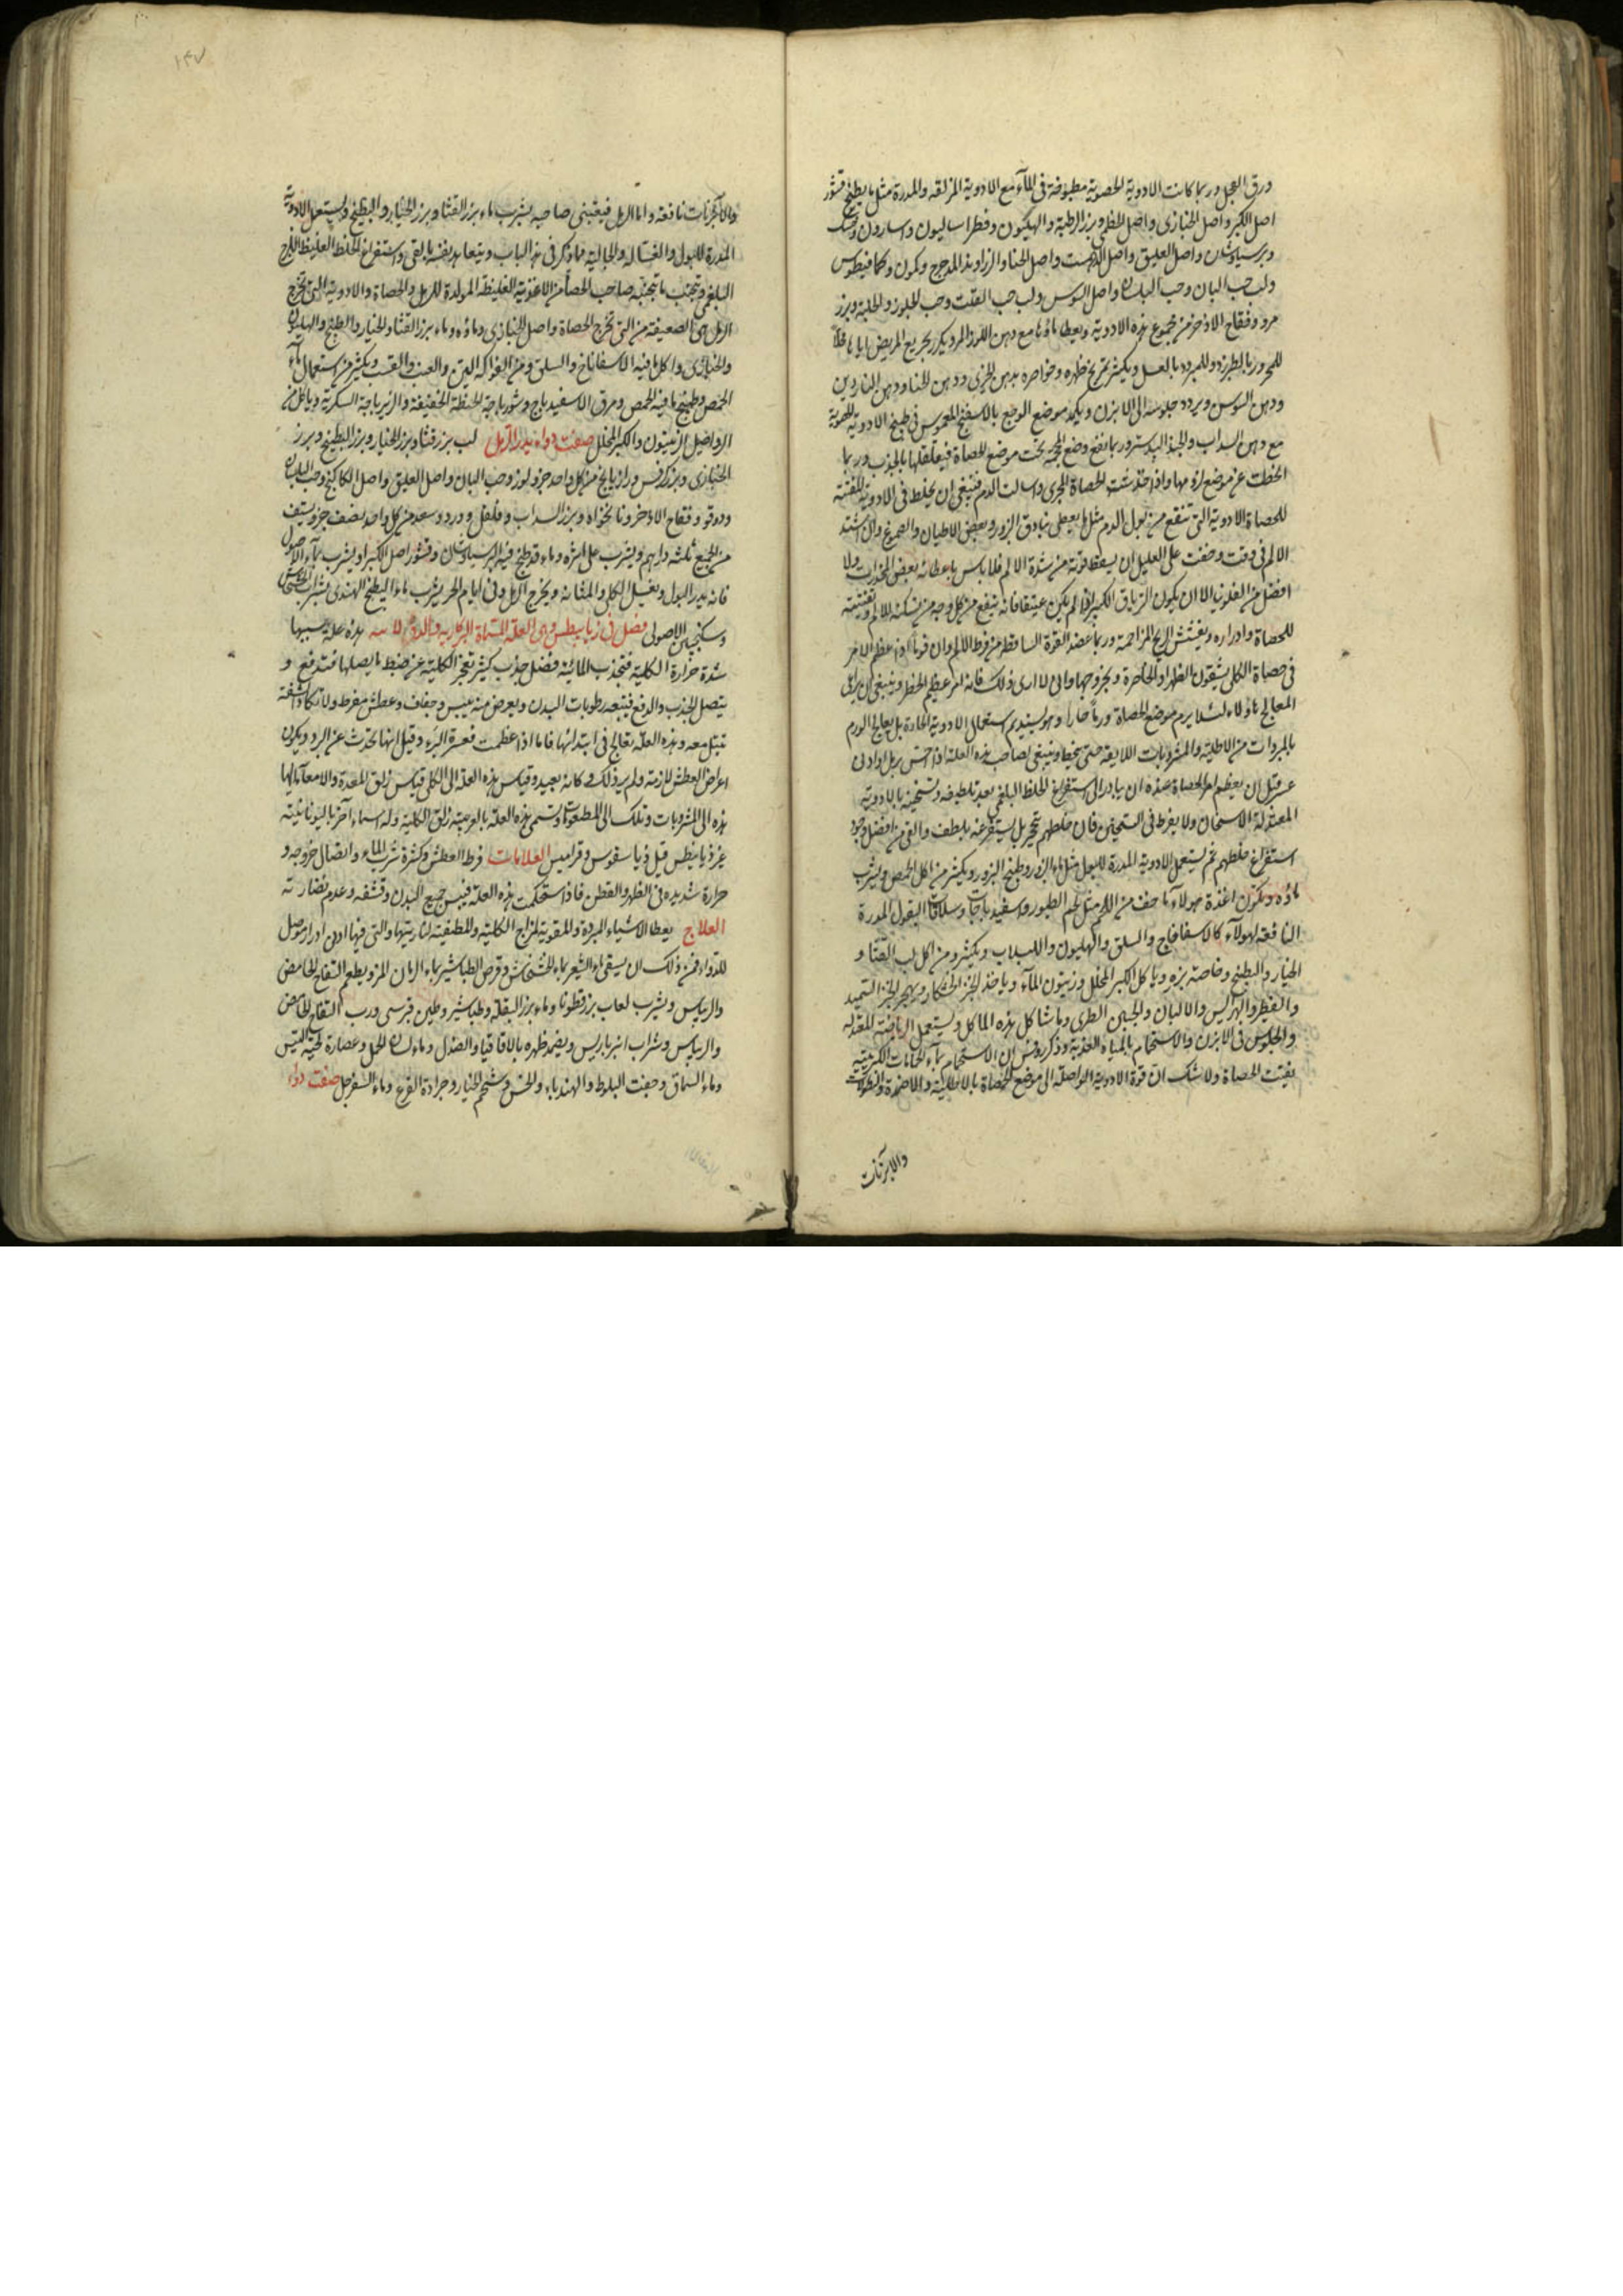 ورق الفجل وربما كانت الادوية الحصوية مطبوخة في الماء مع الادوية المزلقة والمدرة مثل ما يطبخ قشور
اصل الكبر واصل الخبازى واصل الخطمي وبزر الرطبة والهليون وفطراساليون واسارون
وبرسياوشان واصل العليق واصل واصل الحنا والزراوند المدحرج وكمون وكمافيطوس
ولب حب البان وحب البلسان واصل السوس ولب حب القثد وحب المحلوز والحلبة وبزر
مرو وفقاح الاذخر من جميع هذه الادوية ويعطا ماؤها مع دهن اللوز المر ويكرر تجريع المريض اياها
للمحرور بالطبرزد وللمبرود بالعسل ويكثر تمريخ ظهره وخواصره بدهن الخيرى ودهن الحنا ودهن الناردين
ودهن السوسن ويردد جلوسه الى الابزن ويكمد موضع الوجع بالاسفنج المغموس في طبيخ الادوية
مع دهن السداب والجندبيدستر وربما نفع وضع المحجمة تحت موضع الحصاة فيقلقلها بالجذب وربما
انحطت عن موضع لزومها واذا خدشت الحصاة المجرى واسالت الدم فينبغي ان يخلط في الادوية المفتتة
للحصاة الادوية التي تنفع من بول الدم مثل ما يعطى بنادق البزور وبعض الاطيان والصموغ وان اشتد
الالم في وقت وخفت على العليل ان يسقط قوته من شدة الالم فلا باس باعطائه بعض المخدرات ولا
افضل من الفلونيا الا ان يكون الترياق الكبير اذا لم يكن عتيقا فانه ينفع من كل وجه من تسكينه للالم وتفتيته
للحصاة وادراره ويفشش الريح المزاحمة وربما عضد القوة الساقطة من فرط الالم وان قوما اذا عظم الامر
في حصاة الكلى يشقون الظهر او الخاصرة ويخرجوها وانى لا ارى ذلك فانه امر عظيم الخطر وينبغي ان يراعى
المعالج هؤلاء لئلا يرم موضع الحصاة ورما حارا وهو يستديم استعمال الادوية الحادة بل يعالج الورم
بالمبردات من الاطلية والمشروبات اللايقة حتى ينحط وينبغي لصاحب هذه العلة اذا احس برمل او ادنى
عسر قبل ان يعظم امر الحصاة عنده ان يبادر الى استفراغ الخلط البلغمي بعد تلطيفه وتسخينه بالادوية
المعتدلة الاسخان ولا يفرط في التسخين فان خلطهم يتحجر بل يستفرغه بلطف والقى من افضل وجوه
استفراغ خلطهم ثم يستعمل الادوية المدرة للبول مثل ماء البزور وطبيخ البزور ويكثر من اكل الحمص ويشرب
ماؤه ويكون اغذية هؤلاء ما خف من اللحم مثل لحم الطيور واسفيدباجات وسلاقات البقول المدرة
النافعة لهؤلاء كالاسفاناج والسلق والهليون واللبلاب ويكثرو من اكل لب القثا و
الخيار والبطيخ وخاصة بزره وياكل الكبر المخلل وزيتون الماء وياخذ الخبز الخشكار ويهجر الخبز السميد
والفطر والهرايس والالبان والجبن الطرى وما شاكل هذه الماكل ويستعمل الرياضة المعتدلة
والجلوس في الابزن والاستحمام بالمياه العذبة وذكر روفس ان الاستحمام بماء الحمامات الكبريتية
يفتت الحصاة ولا شك ان قوة الادوية الواصلة الى موضع الحصاة بالاطلية والاضمدة والنطولات
والابزنات
١٤٧
والابزنات نافعة واما الرمل فينبغي صاحبه يشرب ماء بزر القثا وبزر الخيار والبطيخ ويستعمل الادوية
المدرة للبول والغسالة والجالية مما ذكر في هذا الباب ويتعاهد نفسه بالقى واستفراغ الخلط الغليظ اللزج
البلغمي وتجنب ما تجنبه صاحب الحصاة من الاغذية الغليظة المولدة للرمل والحصاة والادوية التي تخرج
الرمل هي الضعيفة من التي تخرج الحصاة واصل الخبازى وماؤه وماء بزر القثا والخيار والبطيخ والهليون
والخبازى واكل ما فيه الاسفاناخ والسلق ومن الفواكه التين والعنب والقسب ويكثر من استعمال ماء
الحمص وطبيخ ما فيه الحمص ومرق الاسفيدباج وشورباجة الحنطة الخفيفة والزيرباجة السكرية وياكل من
الرواصيل الزيتون والكبر المخلل صفت دواء يدر الرمل لب بزر قثا وبزر الخيار وبزر البطيخ وبزر
الخبازى وبزر كرفس ورازيانج من كل واحد جزو لوز وحب البان واصل العليق واصل الكاكنج وحب البلسان
ودوقو وفقاح الاذخر ونانخواه وبزر السداب وفلفل وورد وسعد من كل واحد نصف جزو يستف
من الجميع ثلثة دراهم ويشرب على اثره وماء قد طبخ فيه البرسياوشان وقشور اصل الكبر او يشرب بماء الاصول
فانه يدر البول ويغسل الكلى والمثانة ويخرج الرمل وفي ايام الحر يشرب ماء البطيخ الهندى بشراب الخشخاش
وسكنجبين الاصولى فصل في زيابيطس وهي العلة المسماة البركارية هذه علة سببها
شدة حرارة الكلية فتجذب المائية فضل جذب كثير تعجز الكلية عن ضبط ما يصلها فتدفع و
يتصل الجذب والدفع فيتبعه رطوبات البدن ويعرض منه يبس وجفاف وعطش مفرط ولا تكاد الشفة
تبتل معه وهذه العلة تعالج في ابتدائها فاما اذا عظمت فعسرة البرء وقيل انها تحدث عن البرد ويكون
اعراض العطش لازمة ولم ير ذلك وكانه بعيد وقياس هذه العلة الى الكلى قياس زلق المعدة والامعا
هذه الى المشروبات وتلك الى المطعومات وتسمى هذه العلة بالعربية زلق الكلية وله اسماء اخر باليونانية
غير ذيابيطس قيل ذياسقوس وقراميس العلامات فرط العطش وكثرة شرب الماء واتصال خروجه و
حرارة شديدة في الظهر والقطن فاذا استحكمت هذه العلة فيبس جميع البدن وقشفه وعدم نضارته
العلاج يعطا الاشياء المبردة والمقوية لمزاج الكلية والمطفية لناريتها والتي فيها ادنى ادرار موصل
للدواء فمن ذلك ان يسقى ماء الشعير بماء الخشخاش وقرص الطباشير بماء الرمان المز ويطعم التفاح الحامض
والريباس ويشرب لعاب بزرقطونا وماء بزر البقلة وطباشير وطين قبرسى ورب التفاح الحامض
والريباس وشراب انبرباريس ويضمد ظهره بالاقاقيا والصندل وماء لسان الحمل وعصارة لحية التيس
وماء السماق وجفت البلوط والهندباء والخس وشحم الخيار وجرادة القرع وماء السفرجل صفت دواء